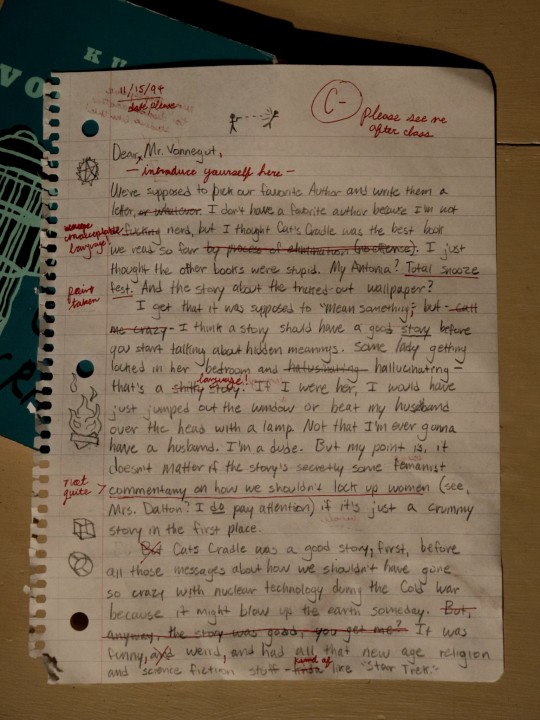 KU
VO
11/15/94
date please
C-
Please see me
after class
Dear, Mr. Vonnegut,
- introduce yourself here -
We're supposed to pick our favorite Author and write them a
letter, or whatever. I don't have a favorite author because I'm not
a fucking nerd, but I thought Cat's Cradle was the best book
unacceptable
language!
we read so far by process of elimination (no offense). I just
thought the other books were stupid. My Antonia? Total snooze
fest. And the story about the tricked-out wallpaper?
point
taken
I get that it was supposed to "mean something," but - call
me crazy - I think a story should have a good story before
you start talking about hidden meanings. Some lady getting
locked in her bedroom and hallucinating -
that's a shitty story. If I were her, I would have
language!
just jumped out the window or beat my husband
over the head with a lamp. Not that I'm ever gonna
have a husband. I'm a dude. But my point is, it
doesn't matter if the story's secretly some femanist
not
quite
commentary on how we shouldn't lock up women (see,
Mrs. Dalton? I do pay attention) if it's just a crummy
story in the first place.
But Cats Cradle was a good story, first, before
all those messages about how we shouldn't have gone
so crazy with nuclear technology during the Cold War
because it might blow up the earth someday. But,
anyway, the story was good, you get me? It was
funny, and weird, and had all that new age religion
and science fiction stuff - kinda like "Star Trek."
kind of